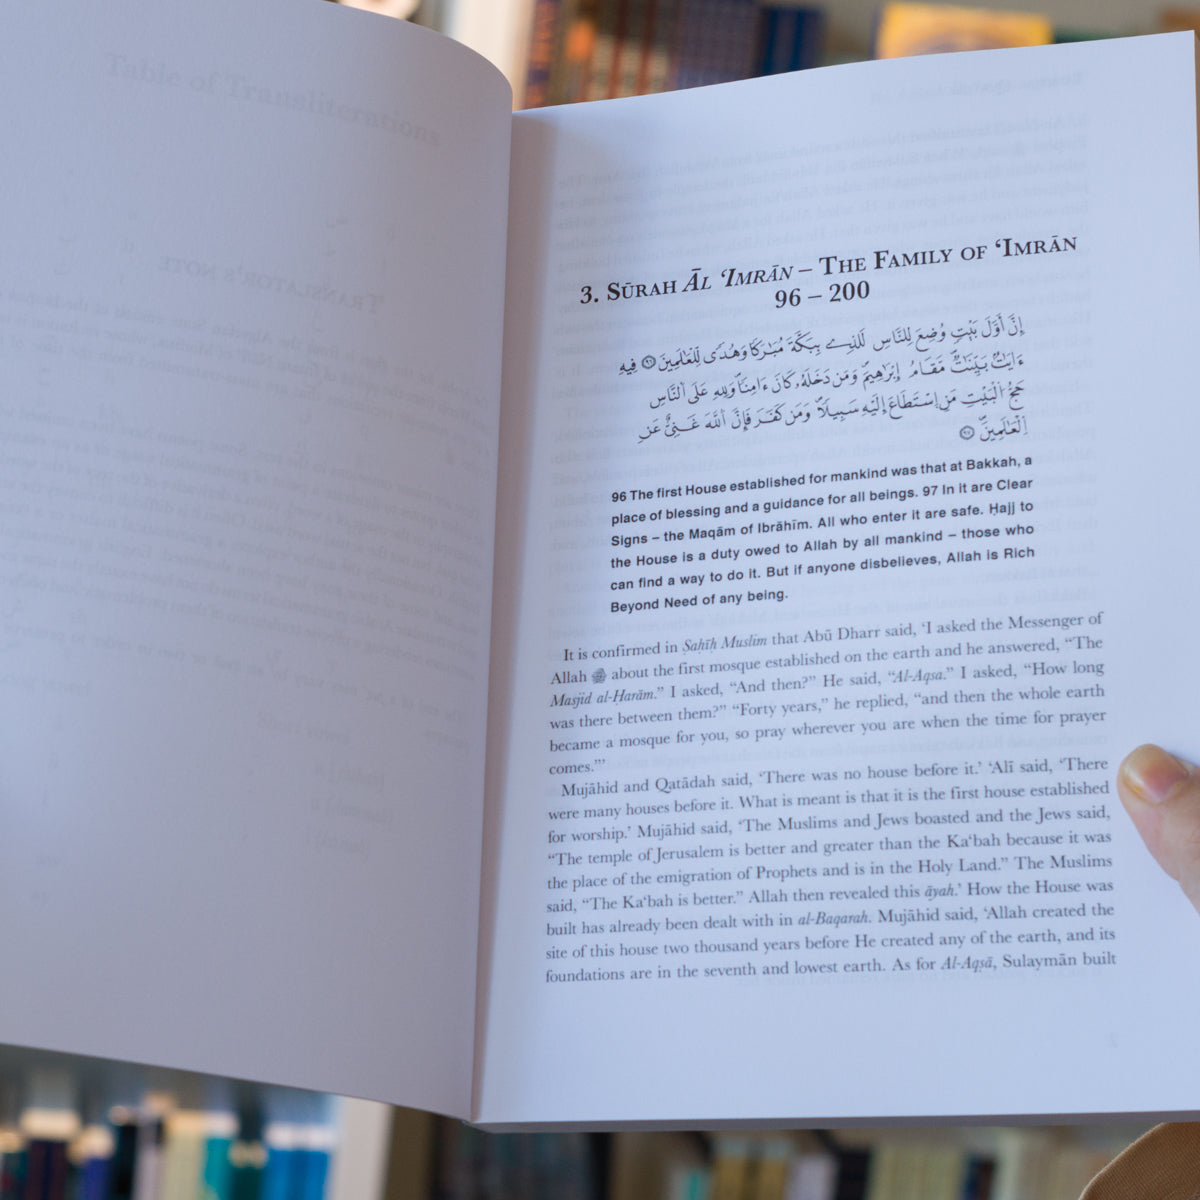 Table of Transliterations
TRANSLATOR'S NOTE
3. SŪRAH ĀL ʻIMRĀN – THE FAMILY OF ʻIMRĀN
96 – 200
إِنَّ أَوَّلَ بَيْتٍ وُضِعَ لِلنَّاسِ لَلَّذِے بِبَكَّةَ مُبَٰرَكاً وَهُدًى لِّلْعَٰلَمِينَ ۝ فِيهِ
ءَايَٰتٌۢ بَيِّنَٰتٌ مَّقَامُ إِبْرَٰهِيمَۖ وَمَن دَخَلَهُۥ كَانَ ءَامِناًۖ وَلِلهِ عَلَى اَلنَّاسِ
حَجُّ اُلْبَيْتِ مَنِ اِسْتَطَاعَ إِلَيْهِ سَبِيلاًۖ وَمَن كَفَرَ فَإِنَّ اَللَّهَ غَنِيٌّ عَنِ
اِلْعَٰلَمِينَۖ ۝
96 The first House established for mankind was that at Bakkah, a
place of blessing and a guidance for all beings. 97 In it are Clear
Signs – the Maqām of Ibrāhīm. All who enter it are safe. Ḥajj to
the House is a duty owed to Allah by all mankind – those who
can find a way to do it. But if anyone disbelieves, Allah is Rich
Beyond Need of any being.
It is confirmed in Sahīh Muslim that Abū Dharr said, ‘I asked the Messenger of
Allah ﷺ about the first mosque established on the earth and he answered, “The
Masjid al-Ḥarām.” I asked, “And then?” He said, “Al-Aqsa.” I asked, “How long
was there between them?” “Forty years,” he replied, “and then the whole earth
became a mosque for you, so pray wherever you are when the time for prayer
comes.”’
Mujāhid and Qatādah said, ‘There was no house before it.’ ʻAlī said, ‘There
were many houses before it. What is meant is that it is the first house established
for worship.’ Mujāhid said, ‘The Muslims and Jews boasted and the Jews said,
“The temple of Jerusalem is better and greater than the Kaʻbah because it was
the place of the emigration of Prophets and is in the Holy Land.” The Muslims
said, “The Kaʻbah is better.” Allah then revealed this āyah.’ How the House was
built has already been dealt with in al-Baqarah. Mujāhid said, ‘Allah created the
site of this house two thousand years before He created any of the earth, and its
foundations are in the seventh and lowest earth. As for Al-Aqsā, Sulaymān built